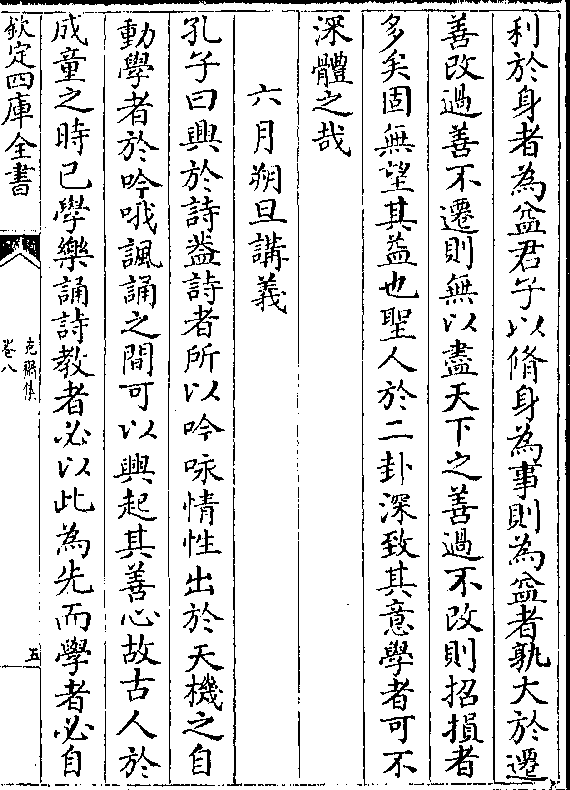 利於身者為益君子以脩身為事則為益者孰大於遷
善改過善不遷則無以盡天下之善過不改則招損者
多矣固無望其益也聖人於二卦深致其意學者可不
深體之哉
六月朔旦講義
孔子曰興於詩葢詩者所以吟咏情性出於天機之自
動學者於吟哦諷誦之間可以興起其善心故古人於
成童之時已學樂誦詩教者必以此為先而學者必自
欽定四庫全書
克齋集
卷八
五